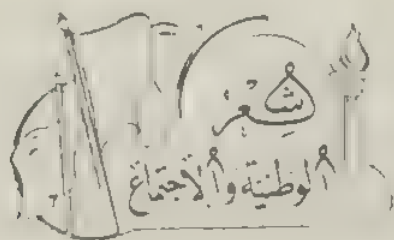 شِعْر
الْوَطَنِيَّةِ وَالْاِجْتِمَاعِ